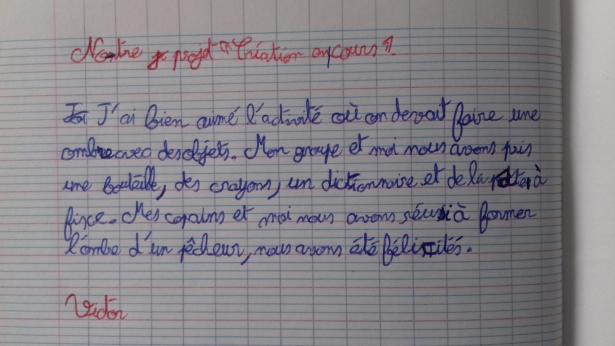 Notre projet "Création en cours"
J'ai bien aimé l'activité où on devait faire une
ombre avec des objets. Mon groupe et moi nous avons pris
une bouteille, des crayons, un dictionnaire et de la patte à
fixe. Mes copains et moi nous avons réussi à former
l'ombe d'un pêcheur, nous avons été félicités.
Victor